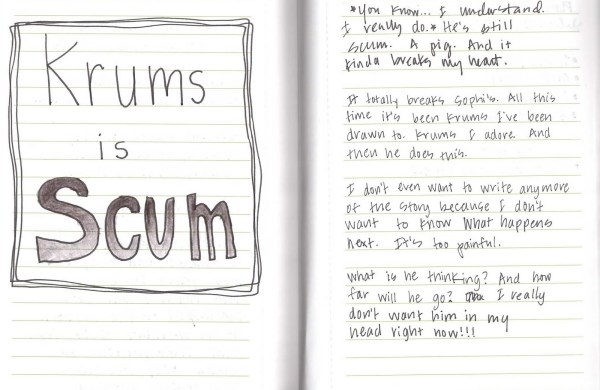 Krums
is
Scum
*You know... I understand.
I really do.* He's still
scum. A pig. And it
kinda breaks my heart.
It totally breaks Sophi's. All this
time it's been Krums I've been
drawn to. Krums I adore. And
then he does this.
I don't even want to write anymore
of the story because I don't
want to know what happens
next. It's too painful.
What is he thinking? And how
far will he go? I really
don't want him in my
head right now!!!